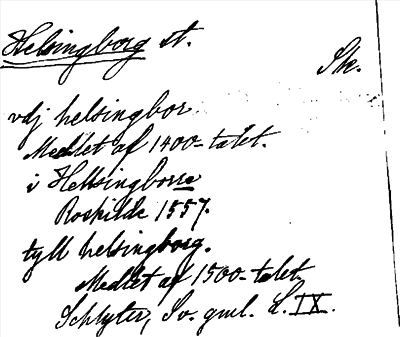 Helsingborg st.
Sk.
vdj helsingbor
Medlet af 1400-talet.
i Hellsingborre
Roskilde 1557.
tyll helsingborg.
Medlet af 1500-talet.
Schlyter, Sv. gml. L. IX.